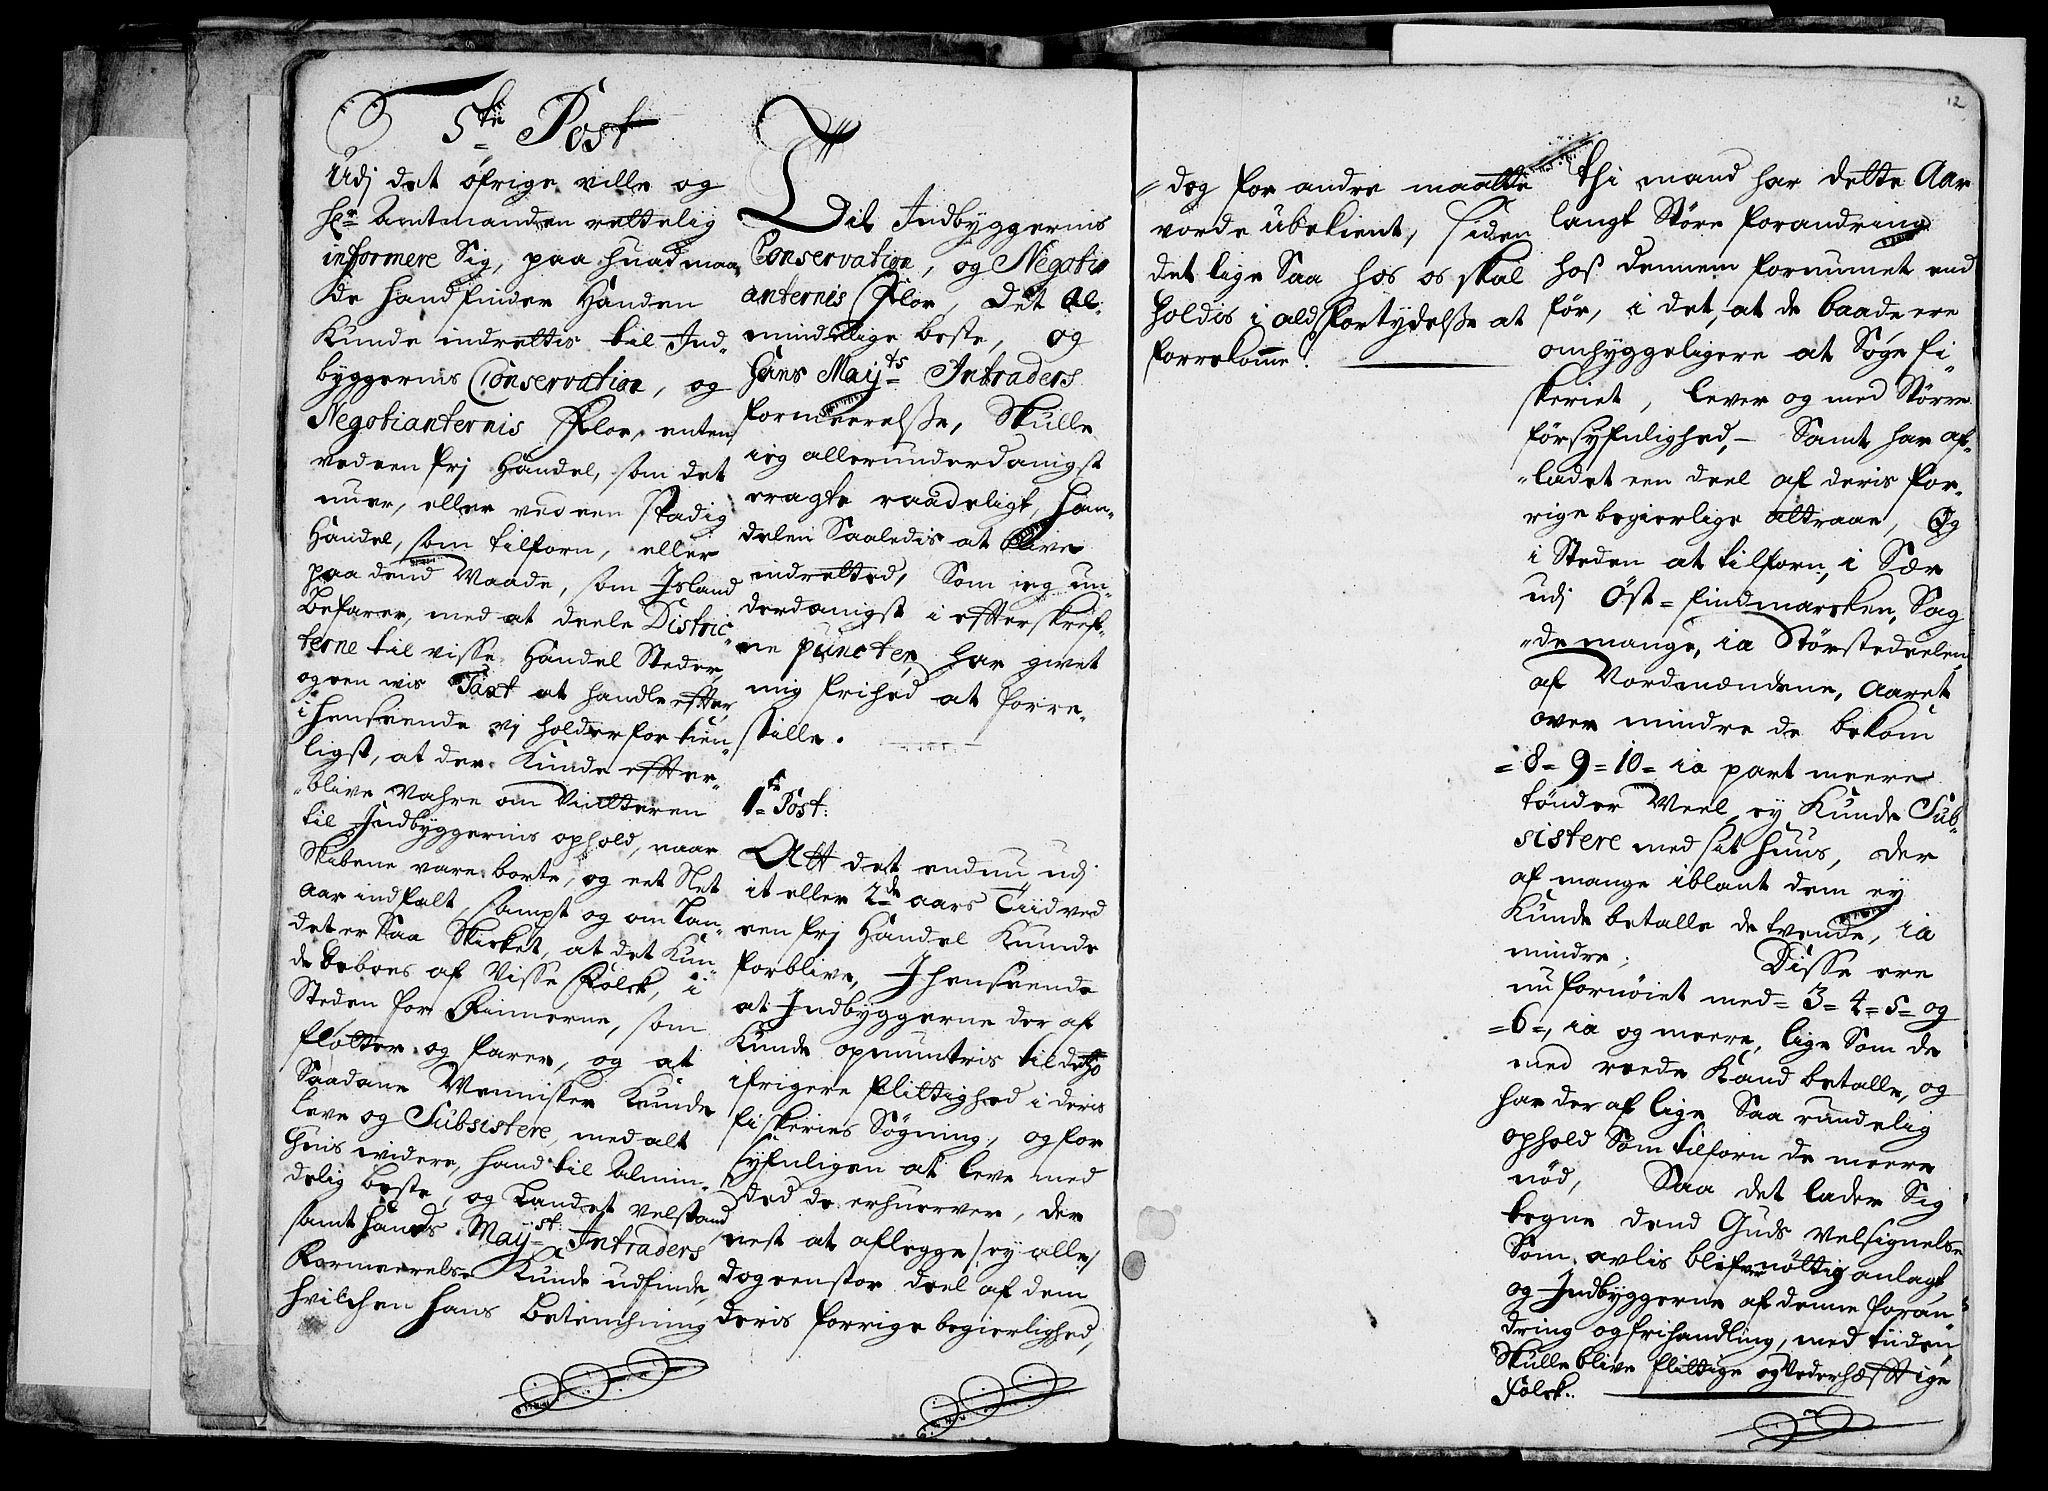 5te Post
Udj det öfrige ville og
Hr. Amtmanden rettelig
informere Sig, paa huad maa„
de hand finder Handen
Kunde indrettis til Ind„
byggernis Conservation, og
Negotianternis Flor, enten
ved een frj Handel, som det
nu er, eller ved een stadig
Handel, som tilforn, eller
paa dend Maade, som Island
befarer, med at deele Distric„
terne til visse Handel Steder,
og een vis Taxt at handle effter,
i henseende vj holder for tien„
ligst, at der Kunde effter„
„blive Vahre om Vintteren
til Indbyggernis ophold, naar
Skibene vare borte, og eet Slet
aar indfalt, sampt og om Lan„
det er Saa Skicket, at det Kun„
de beboes af Visse Folck, i
Steden for Finnerne, som
flötter og farer, og at
Saadane Mennisker Kunde
leve og Subsistere, med alt
huis videre, hand til Almin„
delig beste, og Landet velstand
samt Hands Mayst: Intraders
Formeerelse Kunde udfinde,
hvilchen hans Betenchning
Til Indbyggernis
Conservation, og Negoti„
anternis Flor, det al„
mindelige beste, og
Hans Mayts Intraders
formeerelsse, Skulle
ieg allerunderdanigst
eragte raadeligt, Han„
delen Saaledis at blive
indretted, Som ieg un„
derdanigst i effterskref„
ne puncter, har givet
mig frihed at forre„
stille.
1te Post:
Att det endnu udj
it eller 2de aars Tiid ved
een frj Handel Kunde
forblive, I henseende
at Indbyggerne der af
Kunde opmuntris til desto
ifrigere flittighed i deris
fiskeries Søgning, og for
syfnligen at leve med
ded de erhuerver, der
nest at aflegge /: ey alle /
dog een stor deel af dem
deris forrige begierlighed,
12
„dog for andre maatte
vorde ubekient, siden
det lige Saa hos os skal
holdis i ald fortydelsse at
forrekomme.
thi mand har dette Aar
langt Större forandring
hoß dennem fornummet end
för, i det, at de baade ere
omhyggeligere at Søge fi„
skeriet, lever og med Större
försyfnlighed, Samt har af„
„ladet een deel af deris for„
rige begierlige attraae, Og
i Steden at tilforn, i Sær
udj Öst=findmarcken, Sag„
„de mange, ia Störstedeelen
af Nordmændene, Aaret
over mindre de bekom
=8=9=10= ia part meere
tönder Meel, ey Kunde Sub„
sistere med sit Huus, der
af mange iblant dem ey
Kunde betalle de tvende, ia
mindre; Disse ere
nu fornöiet med=3=4=5= og
=6=, ia og meere, lige Som de
med reede Kand betalle, og
har der af lige Saa rundelig
ophold Som tilforn de meere
nöd, Saa det lader Sig
tegne dend Guds Velsignelse
Som avlis blifver nöttig anlagt,
og Indbyggerne af denne foran„
dring og frihandling, med tiiden
Skulle blive flittige og Vederhæfftige
Folck.